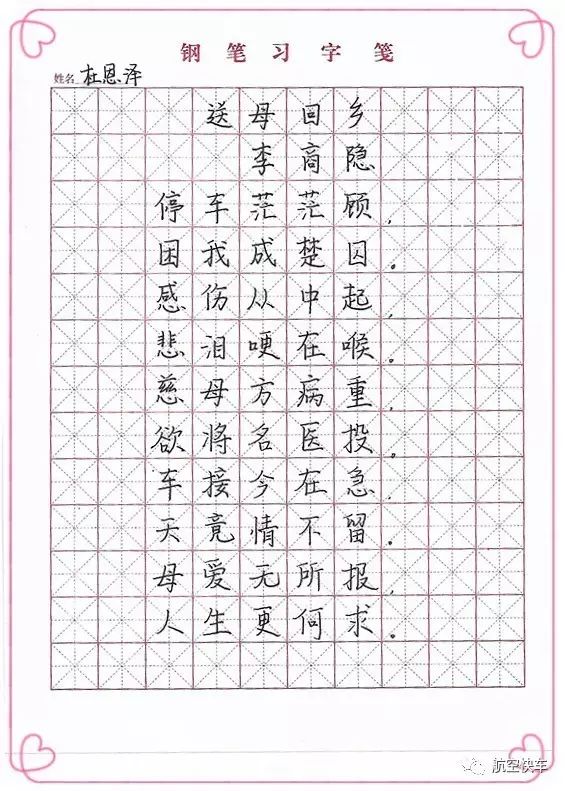 钢笔习字笺
姓名 杜恩泽
送母回乡
李商隐
停车茫茫顾,
困我成楚囚。
感伤从中起,
悲泪哽在喉。
慈母方病重,
欲将名医投。
车接今在急,
天竟情不留。
母爱无所报,
人生更何求。
航空快车